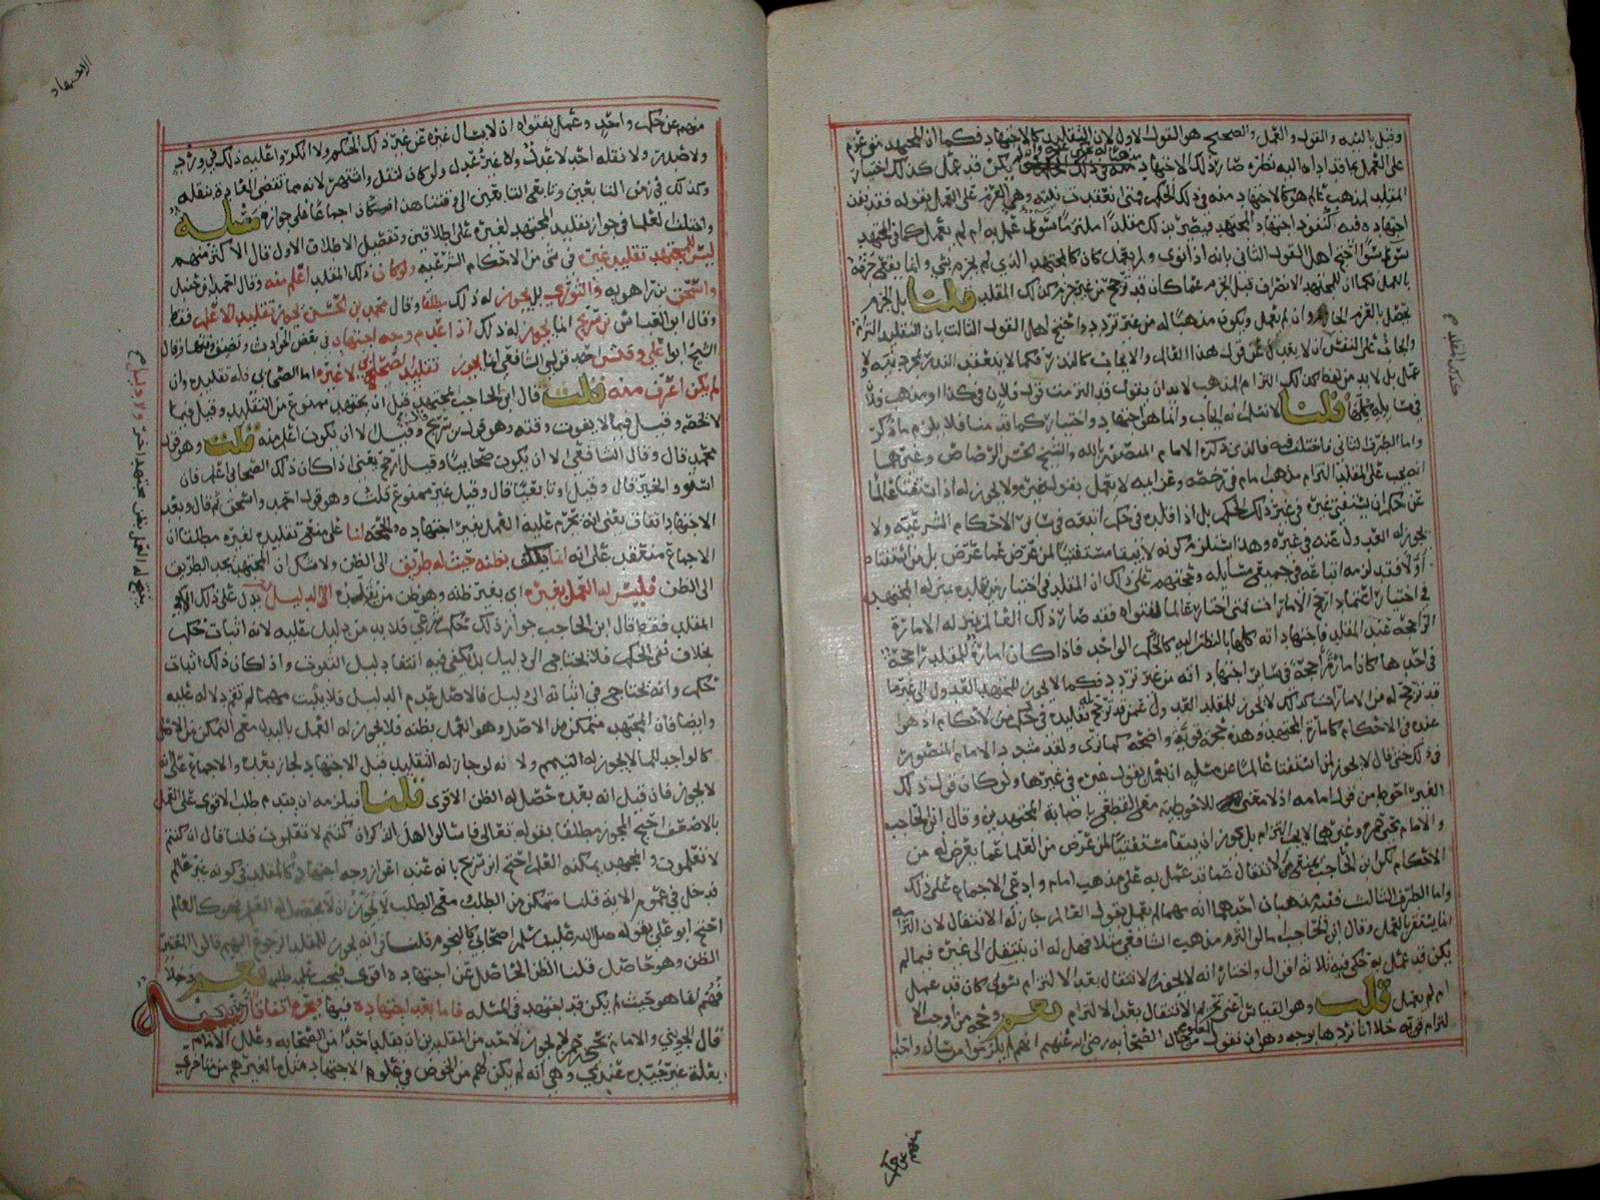 وقيل بالنية والقول والعمل والصحيح هو القول الاول لان التقليد كالاجتهاد فكما ان المجتهد متى عزم
على العمل بما قد اداه اليه نظره صار ذلك لاجتهاد يكن قد عمل كذلك اختيار
المقلد لمذهب عالم هو كالاجتهاد منه في ذلك الحكم فمتى انعقدت نيته وهي العزم على العمل بقوله فقد نفذ
اجتهاده فيه كنفوذ اجتهاد المجتهد فيصير بذلك مقلدا ملتزما سوى عمل به ام لم يعمل كما في المجتهد
سوى سوى احتج اهل القول الثاني بانه اذا نوى ولم يعمل كان كالمجتهد الذي لم يجزم بشي وانما يقوى جزمه
بالعمل فكما ان للمجتهد الانصراف قبل الجزم عما كان قد ترجح من غير جزم كذلك المقلد قلنا بل الجزم
يحصل بالعزم وان لم يعمل ويكون مذهبا له من غير تردد واحتج اهل القول الثالث بان التقليد التزام
وايجاب على النفس ان لا يعدل عن قول هذا القائل والايجاب كالنذر فكما لا ينعقد النذر بمجرد نية ولا
عمل بل لا بد من لفظ كذلك التزام المذهب لا بد ان يقول قد التزمت قول فلان في كذا او مذهب فلان
في مسائله كلها قلنا لا نسلم انه ايجاب وانما هو اجتهاد واختيار كما قدمنا فلا يلزم ما ذكر
واما الطرف الثاني فاختلف فيه فالذي ذكره الامام المنصور بالله والشيخ الحسن الرصاص وغيرهما
انه يجب على المقلد التزام مذهب امام في رخصه وعزايمه لا يعمل بقول غيره ولا يجوز له اذا استفتا عالما
عن حكم ان يستفتي غيره في غير ذلك الحكم بل اذا قلده في حكم اتبعه في سائر الاحكام الشرعيه ولا
يجوز له العدول عنه في غيره وهذا استلزم كونه لا يبقا مستفتيا لمن عرض عما عرض بل من استفتاه
اولا فقد لزمه اتباعه في جميع مسايله وحجتهم على ذلك ان المقلد في اختيار من يقلده بمنزلة المجتهد
في اختيار اعتماد ارجح الامارات فمتى اختار عالما لفتواه فقد صار ذلك العالم بمنزلة الامارة
الراجحه عند المقلد فاجتهاداته كلها بالنظر اليه كالحكم الواحد فاذا كان امارة للمقلد راجحة
في احدها كان امارة راجحة في سائر اجتهاداته من غير تردد فكما لا يجوز للمجتهد العدول الى غير ما
قد ترجح له من الامارات كذلك لا يجوز للمقلد العدول عمن قد ترجح له تقليده في حكم من الاحكام اذ هو
عنده في الاحكام كامارة المجتهد وهذه حجة قوية واضحه كما ترى ولقد شدد الامام المنصور
في ذلك حتى قال لا يجوز لمن استفتا عالما عن مسئله ان يعمل بقول غيره في غيرها ولو كان قول ذلك
الغير احوط من قول امامه اذ لا معنى للاحوطيه مع القطع باصابة المجتهدين وقال ابن الحاجب
والامام يحيى وغيرهما لا يجب التزام بل يجوز ان يبقا مستفتيا لمن عرض من العلما عما يعرض له من
الاحكام لكن ابن الحاجب يمنع من الانتقال عما قد عمل به على مذهب امام وادعى الاجماع على ذلك
واما الطرف الثالث ففيه مذهبان احدهما انه مهما لم يعمل بقول العالم جاز له الانتقال لان التزامه
انما يستقر بالعمل وقال ابن الحاجب اما لو التزم مذهب الشافعي مثلا فهل له ان ينتقل الى غيره فيما لم
يكن قد عمل به حكى فيه ثلاثة اقوال واختار انه لا يجوز الانتقال بعد الالتزام سوى كان قد عمل
ام لم يعمل قلت وهو القياس اعني تحريم الانتقال بعد الالتزام نعم وحجة من اوجب الا
لتزام قويه خلا انا نردها بوجه وهو ان نقول المعلوم من حال الصحابه رضي الله عنهم انهم لم يلزموا من سال واحدا
منهم عن حكم
منهم عن حكم واحد وعمل بفتواه ان لا يسال غيره عن غير ذلك الحكم ولا انكروا عليه ذلك في ورد
ولا صدر ولا نقله احد لا عدل ولا غير عدل ولو كان لنقل واشتهر لانه مما تقضي العادة بنقله
وكذلك في زمن التابعين وتابعي التابعين الى وقتنا هذا فكان اجماعا على جوازه مسئله
واختلف العلما في جواز تقليد المجتهد لغيره على اطلاقين وتفصيل الاطلاق الاول قال الاكثر منهم
ليس للمجتهد تقليد غيره في شي من الاحكام الشرعيه ولو كان ذلك المقلد اعلم منه وقال احمد بن حنبل
واسحق بن راهويه والثوري بل يجوز له ذلك مطلقا وقال محمد بن الحسن يجوز تقليد الاعلم فقط
وقال ابو العباس بن سريج انما يجوز له ذلك اذا عدم وجه اجتهاد في بعض الحوادث وقال
الشيخ ابو علي وقش احد قولي الشافعي انما يجوز تقليد الصحابي لا غيره اما الصحابي فله تقليده وان
لم يكن اعرف منه قلت قال ابن الحاجب المجتهد قبل ان يجتهد ممنوع من التقليد وقيل فيما
لا يخصه وقيل فيما لا يفوت وقته وهو قول بن سريج وقيل الا ان يكون اعلم منه قلت وهو قول
محمد قال وقال الشافعي الا ان يكون صحابيا وقيل ارجح يعني اذا كان ذلك الصحابي اعلم فان
استووا تخير قال وقيل او تابعيا قال وقيل غير ممنوع قلت وهو قول احمد واسحق ثم قال وبعد
الاجتهاد اتفاق يعني انه يحرم عليه العمل بغير اجتهاده والحجه لنا على منع تقليده لغيره مطلقا ان
الاجماع منعقد على انه انما يكلف بظنه حيث له طريق الى الظن ولا شك ان المجتهد يجد الطريق
الى الظن فليس له العمل بغيره اي بغير ظنه وهو ظن من يقلده الا لدليل يدل على ذلك
المقلد فقط قال ابن الحاجب جواز ذلك حكم شرعي فلا بد من دليل عليه لانه اثبات حكم
بخلاف نفي الحكم فلا يحتاج الى دليل بل يكفي فيه انتفا دليل الثبوت واذ كان ذلك اثبات
حكم وانه يحتاج في اثباته الى دليل فالاصل عدم الدليل فلا يثبت مهما لم تقم دلاله عليه
وايضا فان المجتهد متمكن من الاصل وهو العمل بظنه فلا يجوز له العمل بالبدل مع التمكن من الاصل
كالواجد للما لا يجوز له التيمم ولانه لو جاز له التقليد قبل الاجتهاد لجاز بعده والاجماع على انه
لا يجوز فان قيل انه بعده حصل له الظن الاقوى قلنا فيلزمه ان يقدم طلب الاقوى على العمل
بالاضعف احتج المجوز مطلقا بقوله تعالى فاسالوا اهل الذكر ان كنتم لا تعلمون قلنا قال ان كنتم
لا تعلمون والمجتهد يمكنه العلم احتج ابن سريج بانه عند اعواز وجه اجتهاد كالمقلد في كونه غير عالم
فدخل في عموم الاية قلنا متمكن من الطلب مع الطلب لا يجوز ان لا يحصل له العلم
احتج ابو علي بقوله صلى الله عليه وسلم اصحابي كالنجوم قلنا في انه يجوز للمقلد الرجوع اليهم قالوا المعتبر
الظن وهو حاصل قلنا الظن الحاصل عن اجتهاده اقوى فيجب عليه طلبه نعم وخلا
فهم انما هو حيث لم يكن قد اجتهد في المسئله فاما بعد اجتهاده فيها فيحرم اتفاقا تنبيه
قال الجويني والامام يحيى لا يجوز لاحد من المقلدين ان يقلد احدا من الصحابه وعلل الامام
بعلة غير جيده عندي وهي انه لم يكن لهم من الخوض في علوم الاجتهاد مثل ما لغيرهم من متاخري
الاجتهاد